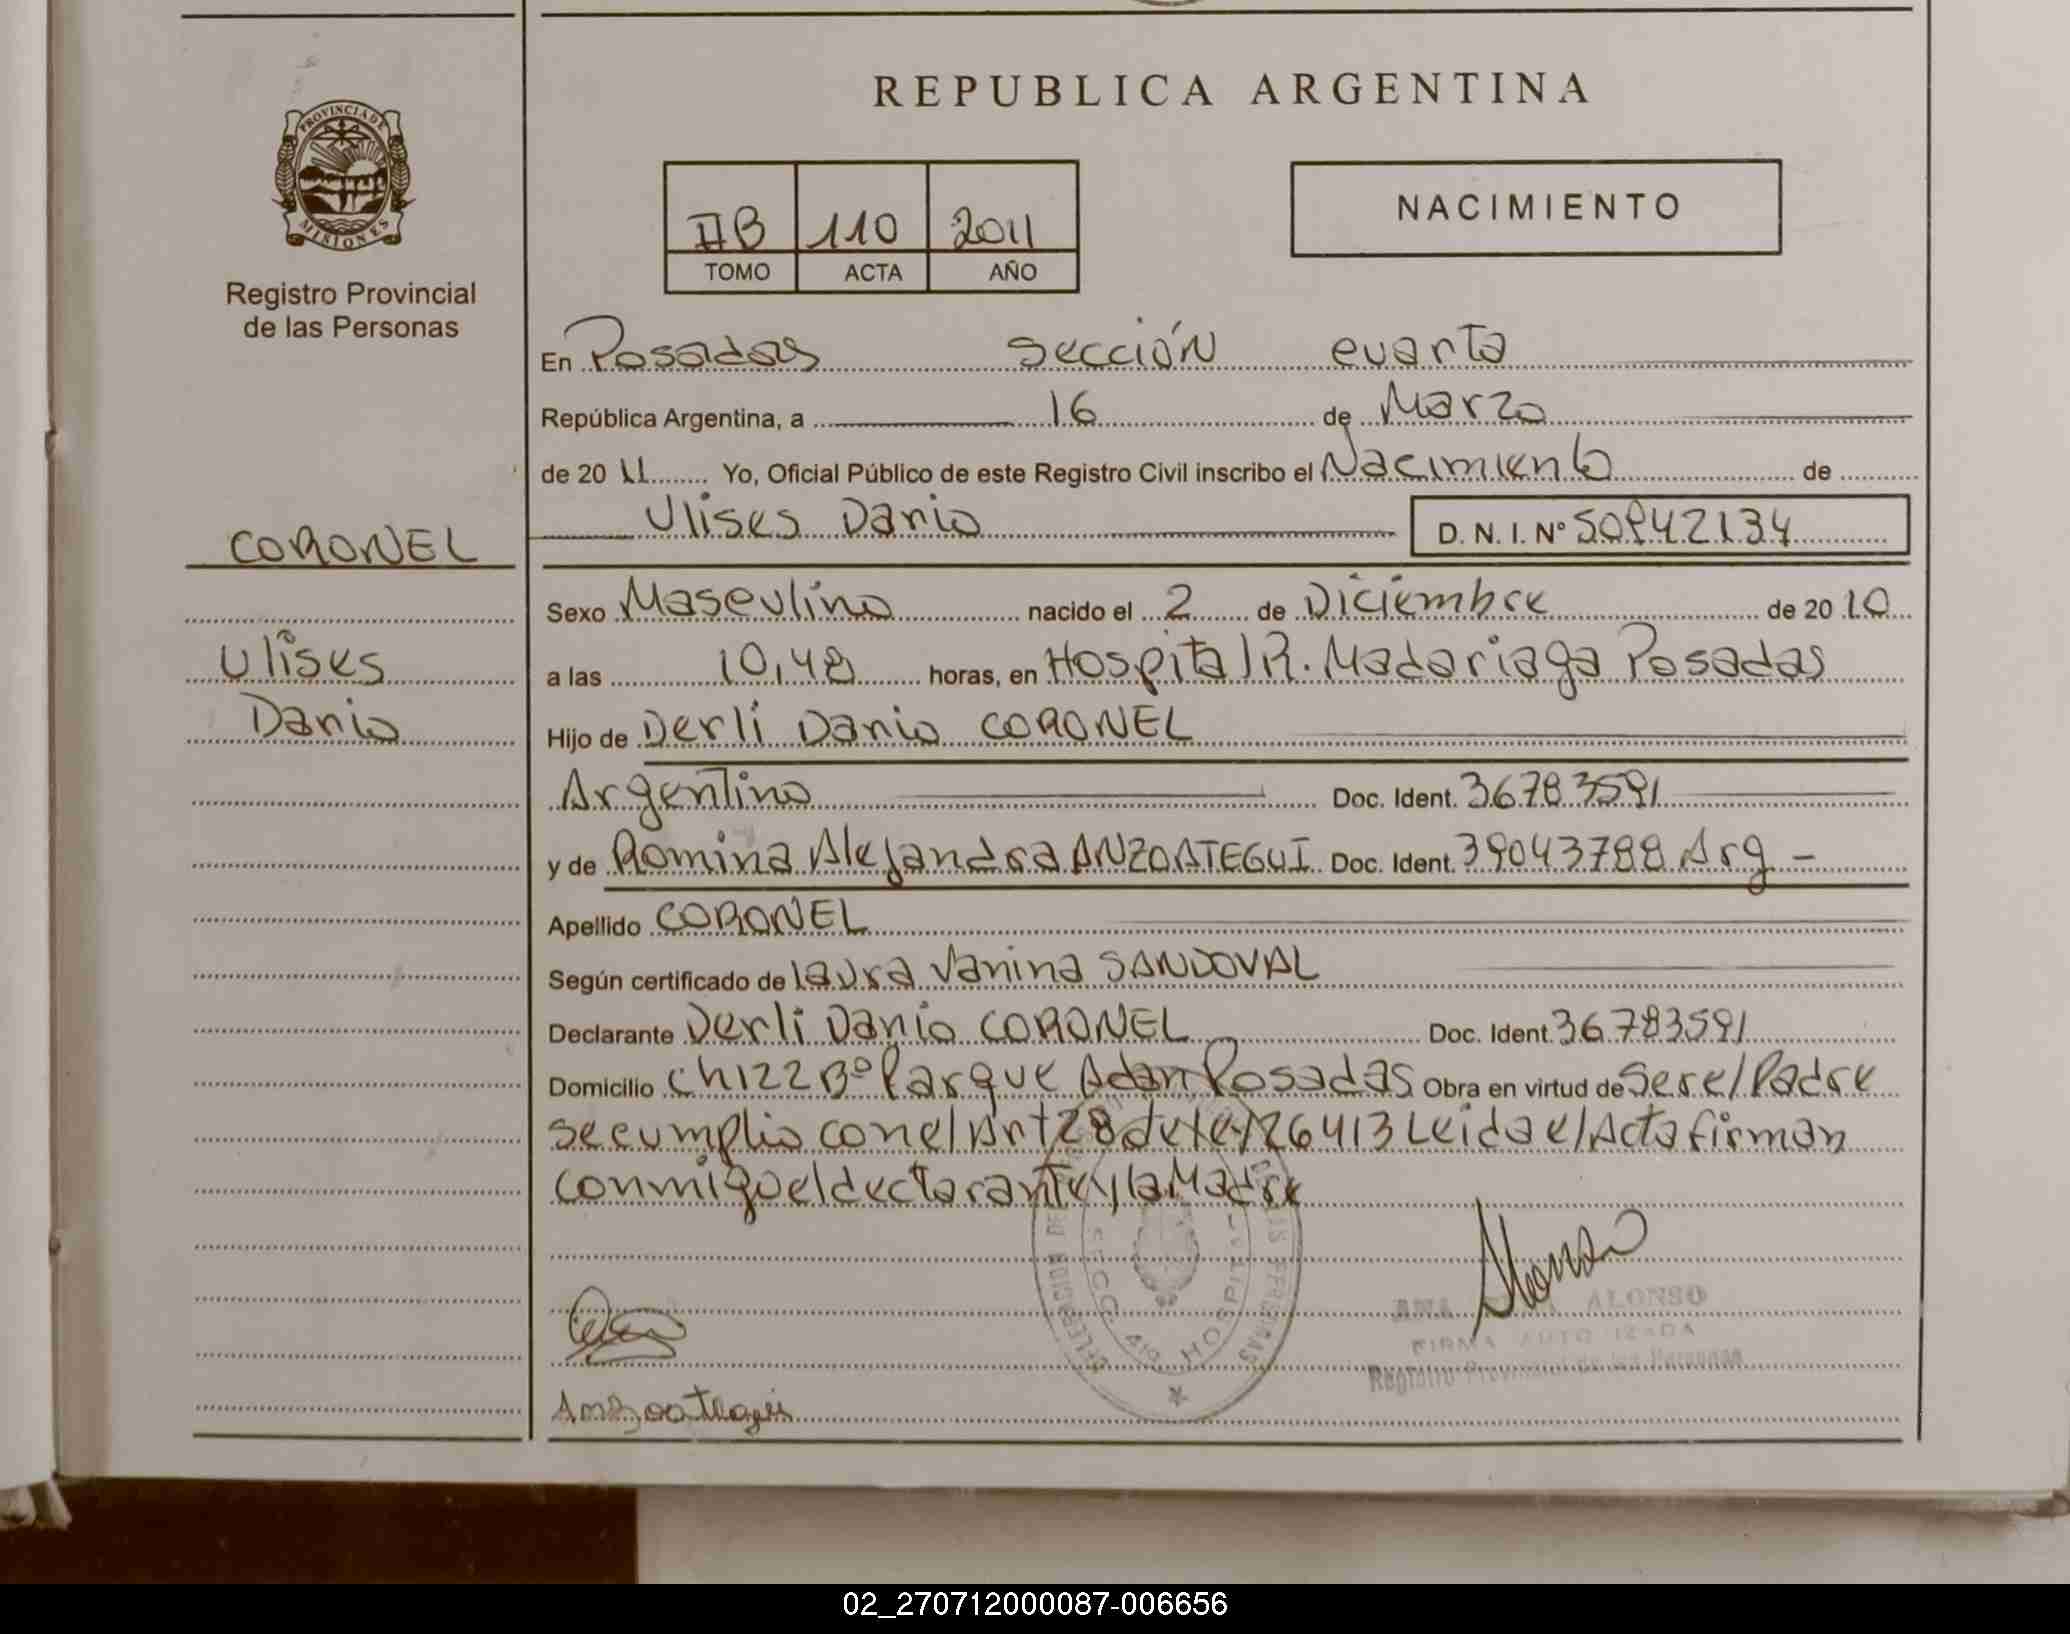 REPUBLICA ARGENTINA
PROVINCIA DE
MISIONES
Registro Provincial
de las Personas
NACIMIENTO
IIB 110 2011
TOMO ACTA AÑO
En Posadas sección cuarta
República Argentina, a 16 de Marzo
de 20 11 Yo, Oficial Público de este Registro Civil inscribo el Nacimiento de
Ulises Dario D. N. I. Nº 50842134
CORONEL
Ulises
Dario
Sexo Masculino nacido el 2 de Diciembre de 20 10
a las 10,48 horas, en Hospital R. Madariaga Posadas
Hijo de Derli Dario CORONEL
Argentino Doc. Ident. 36783591
y de Romina Alejandra ANZOATEGUI Doc. Ident. 39043788 Arg -
Apellido CORONEL
Según certificado de Laura Vanina SANDOVAL
Declarante Derli Dario CORONEL Doc. Ident. 36783591
Domicilio Ch122 Bº Parque Adam Posadas Obra en virtud de Ser el Padre
se cumplio con el Art 28 de Ley 26413 Leida el Acta firman
conmigo el declarante y la Madre
SECC. 4ta HOSPITAL
Alonso
ANA ALONSO
FIRMA AUTORIZADA
Registro Provincial de las Personas
Anzoategui
02_270712000087-006656